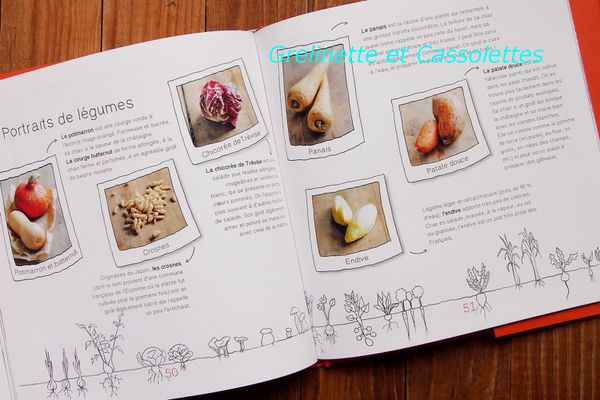 Portraits de légumes
Le potimarron est une courge ronde à
l'écorce rouge-orangé. Farineuse et sucrée,
sa chair a la saveur de la châtaigne.
La courge butternut de forme allongée, à la
chair ferme et parfumée, a un agréable goût
de beurre noisette.
Potimarron et butternut
Crosnes
Originaires du Japon, les crosnes
(dont le nom provient d'une commune
française de l'Essonne où la plante fut
cultivée pour la première fois) ont un
goût légèrement sucré qui rappelle
un peu l'artichaut.
Chicorée de Trévise
La chicorée de Trévise est
salade aux feuilles
rougeâtres et
blanc, qui se présente en
cœurs pommés. On l'associe
plus souvent à d'autres
de salade. Son goût
amer et poivré se marie
avec celui de la
50
Le panais est la racine d'une plante qui ressemble à
une grosse carotte blanchâtre. La texture de sa chair
ivoire rappelle un peu celle du navet, mais sa
Grelinette et Cassolettes
à l'eau, le préparer
Panais
La patate douce est un
tubercule sucré, qui est cultivé
dans les pays chauds. On en
trouve plus facilement dans les
rayons de produits exotiques.
Sa chair a un goût qui évoque
la châtaigne et se marie bien
avec les viandes blanches.
Elle se cuisine comme la pomme
de terre (en purée, au four, en
frites, en robe des champs,
etc.) et peut servir à
préparer des gâteaux.
Patate douce
Endive
Légume léger et rafraîchissant (près de 95 %
d'eau), l'endive apporte très peu de calories.
Crue en salade, braisée, à la vapeur, en jus
ou gratinée, l'endive est un plat très prisé des
Français.
51